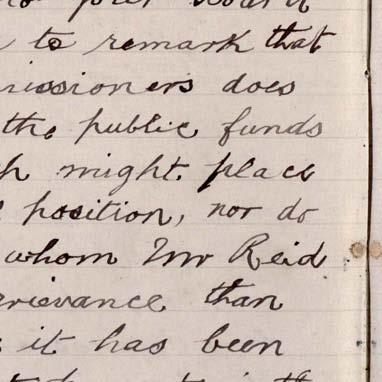 to remark that
missioners does
the public funds
might place
position, nor do
whom Mr Reid
grievance than
it has been